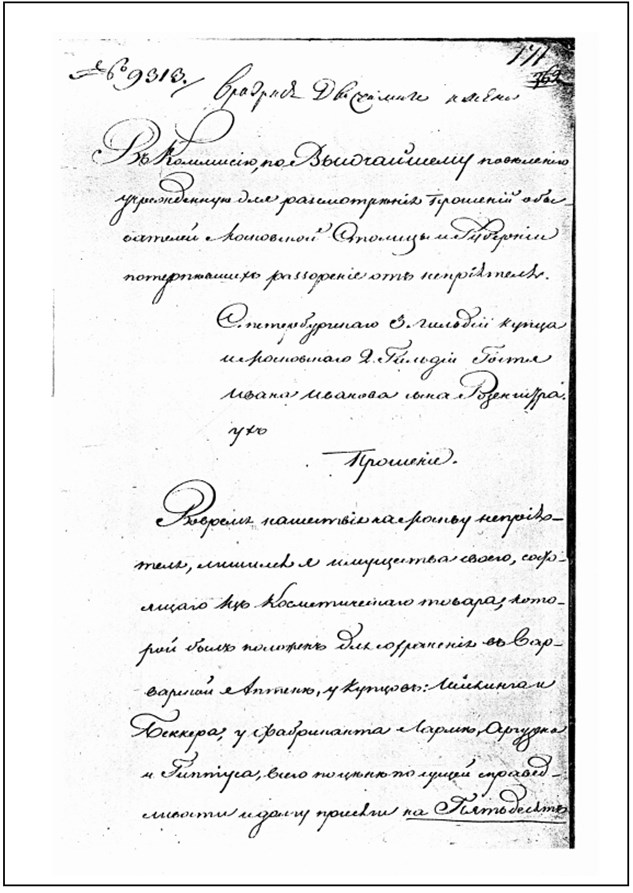 171
№ 9313.
Въ Коммисію, по Высочайшему повелѣнію
учрежденную для разсмотрѣнія прошеній обы-
вателей Московской Столицы и Губерніи
потерпѣвшихъ раззореніе отъ непріятеля.
С. петербургскаго 3. гильдіи купца
и московскаго 2. Гильдіи Гостя
Ивана Иванова сына
Прошеніе.
Вовремя нашествія на москву непрія-
теля, лишился я имущества своего, состо-
ящаго изъ Косметическаго товара, кото-
рой былъ положенъ для сохраненія въ Вар-
варской Аптекѣ, у купцовъ:
Беккера, у фабриканта
и Гиптуса, всего по цѣнѣ по сущей справед-
ливости и долгу присяги на Пятьдесятъ